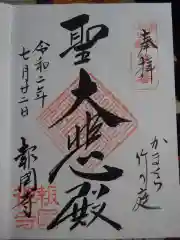 奉拝
かまくら
竹の庭
聖大悲殿
令和二年
七月廿二日
報国寺